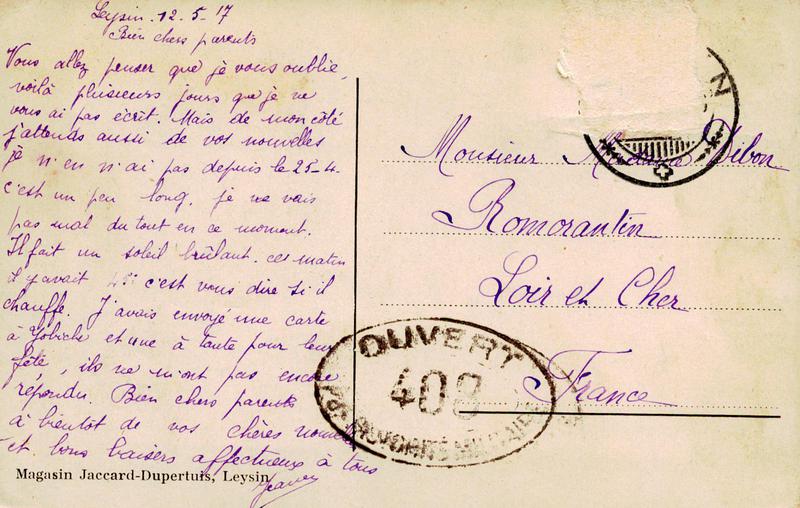 Leysin. 12-5-17
Bien chers parents
Vous allez penser que je vous oublie,
voilà plusieurs jours que je ne
vous ai pas écrit. Mais de mon côté
j'attends aussi de vos nouvelles
je n'en n'ai pas depuis le 25-4.
c'est un peu long. je ne vais
pas mal du tout en ce moment.
Il fait un soleil brûlant. ces matin
il y avait c'est vous dire si il
chauffe. J'avais envoyé une carte
à et une à tante pour leur
fête, ils ne m'ont pas encore
répondu. Bien chers parents
à bientôt de vos chères
et bons baisers affectueux à tous
Magasin Jaccard-Dupertuis, Leysin
Monsieur Madame Dibon
Romorantin
Loir et Cher
France
OUVERT
408
PAR AUTORITÉ MILITAIRE
N